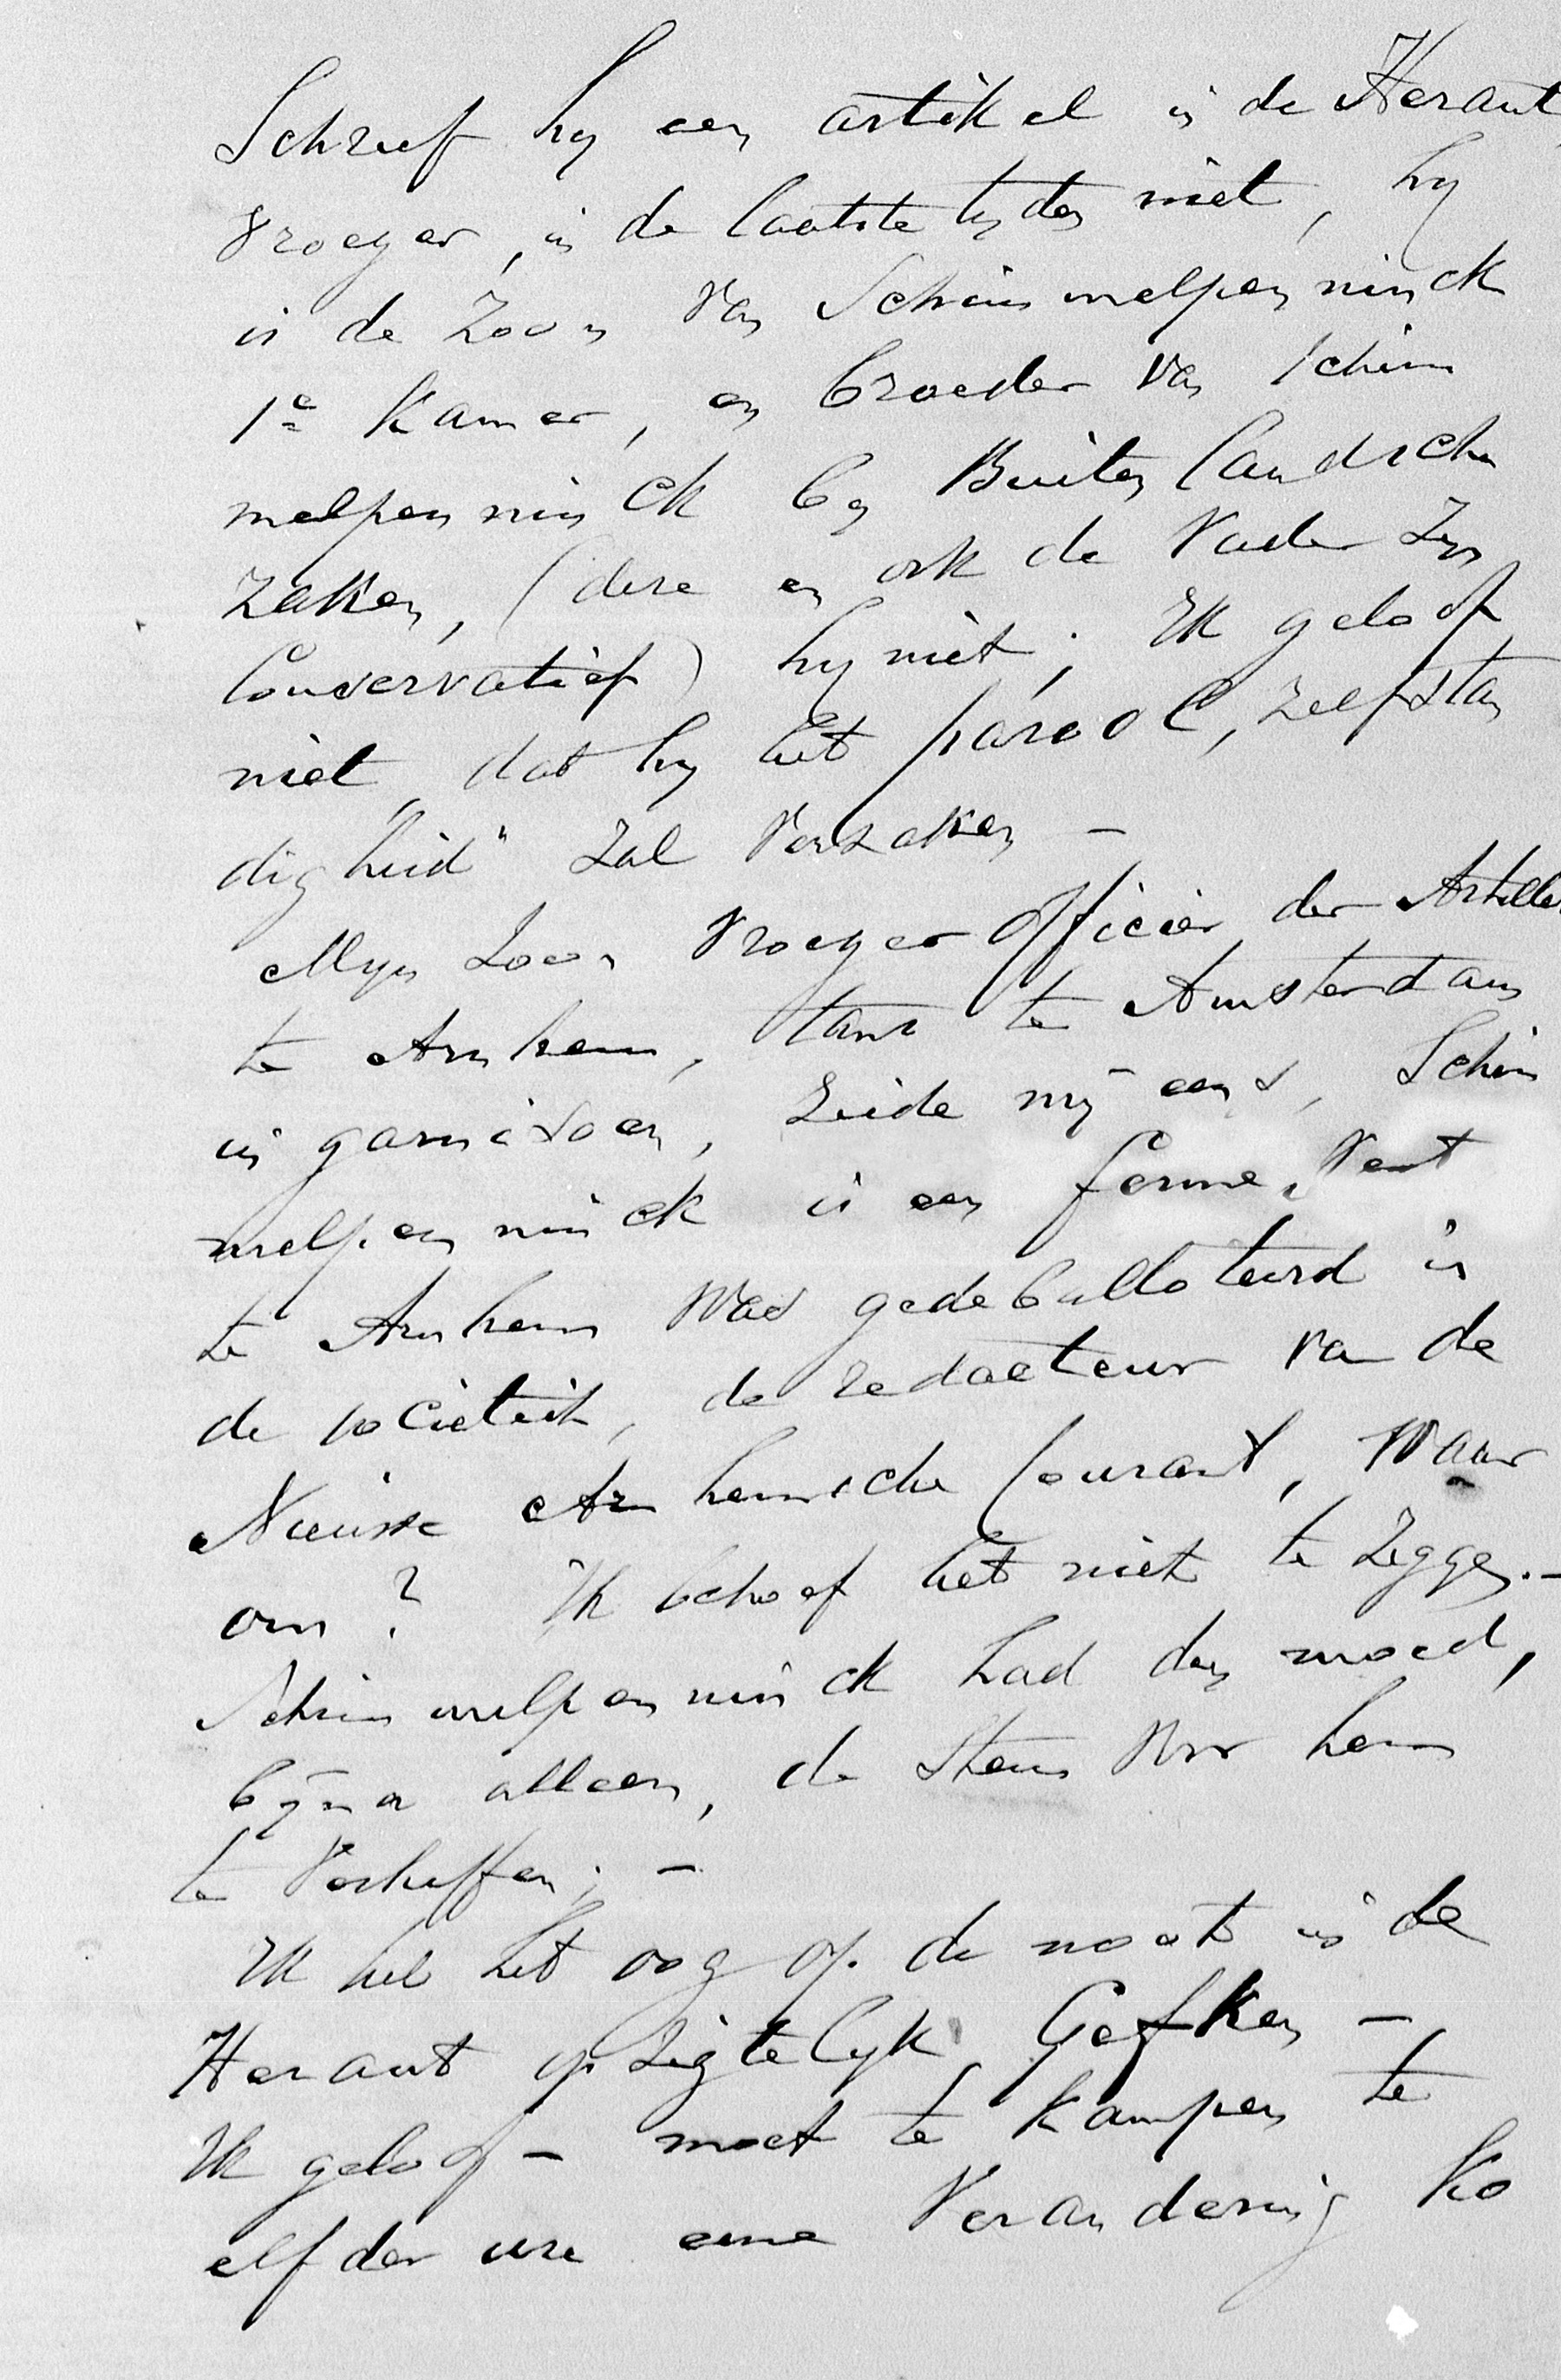 Schreef hy een artikel in de Heraut,
vroeger, in de laatste tyden niet, hy
is de Zoon van Schimmelpenninck
1e Kamer, en broeder van Schim
melpenninck by Buitenlandsche
Zaken, (deze en ook de Vader Zyn
Conservatief) hy niet; Ik geloof
niet dat hy het parool, zelfstan
digheid" Zal Verzaken –
Myn Zoon vroeger officier der Artille
te Arnhem, thans te Amsterdam
in garnisoen, Zeide mÿ eens, Schim
melpenninck is een ferme Vent
te Arnhem was gedeballoteerd in
de societeit, de redacteur van de
Nieuwe Arnhemsche Courant, Waar
om? Ik behoef het niet te Zeggen. –
Schimmelpenninck had den moed,
bÿna alleen, de Stem Voor hem
te Verheffen; –
Ik heb het oog op de noot in de
Heraut opzigtelyk Gefken –
Ik geloof – moet te Kampen te
elfder ure eene Verandering Ko